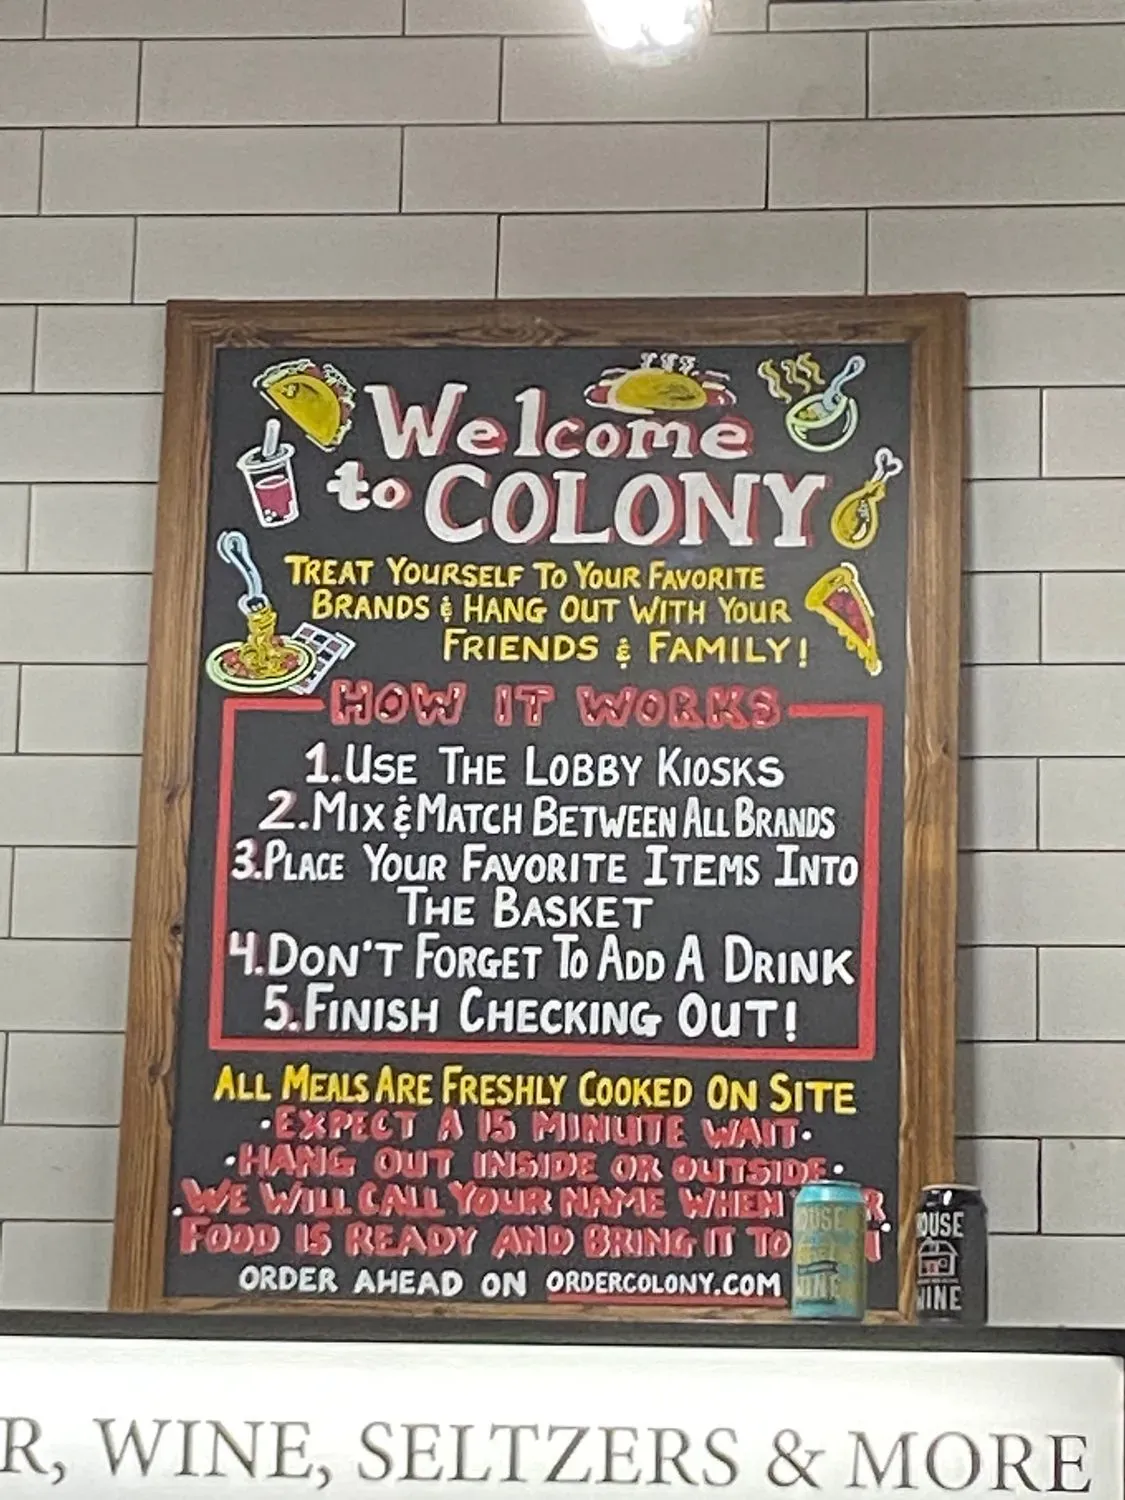 Welcome
to COLONY
TREAT YOURSELF TO YOUR FAVORITE
BRANDS & HANG OUT WITH YOUR
FRIENDS & FAMILY!
HOW IT WORKS
1. USE THE LOBBY KIOSKS
2. MIX & MATCH BETWEEN ALL BRANDS
3. PLACE YOUR FAVORITE ITEMS INTO
THE BASKET
4. DON'T FORGET TO ADD A DRINK
5. FINISH CHECKING OUT!
ALL MEALS ARE FRESHLY COOKED ON SITE
• EXPECT A 15 MINUTE WAIT •
• HANG OUT INSIDE OR OUTSIDE •
• WE WILL CALL YOUR NAME WHEN
FOOD IS READY AND BRING IT TO
ORDER AHEAD ON ORDERCOLONY.COM
HOUSE
WINE
HOUSE
WINE
R, WINE, SELTZERS & MORE